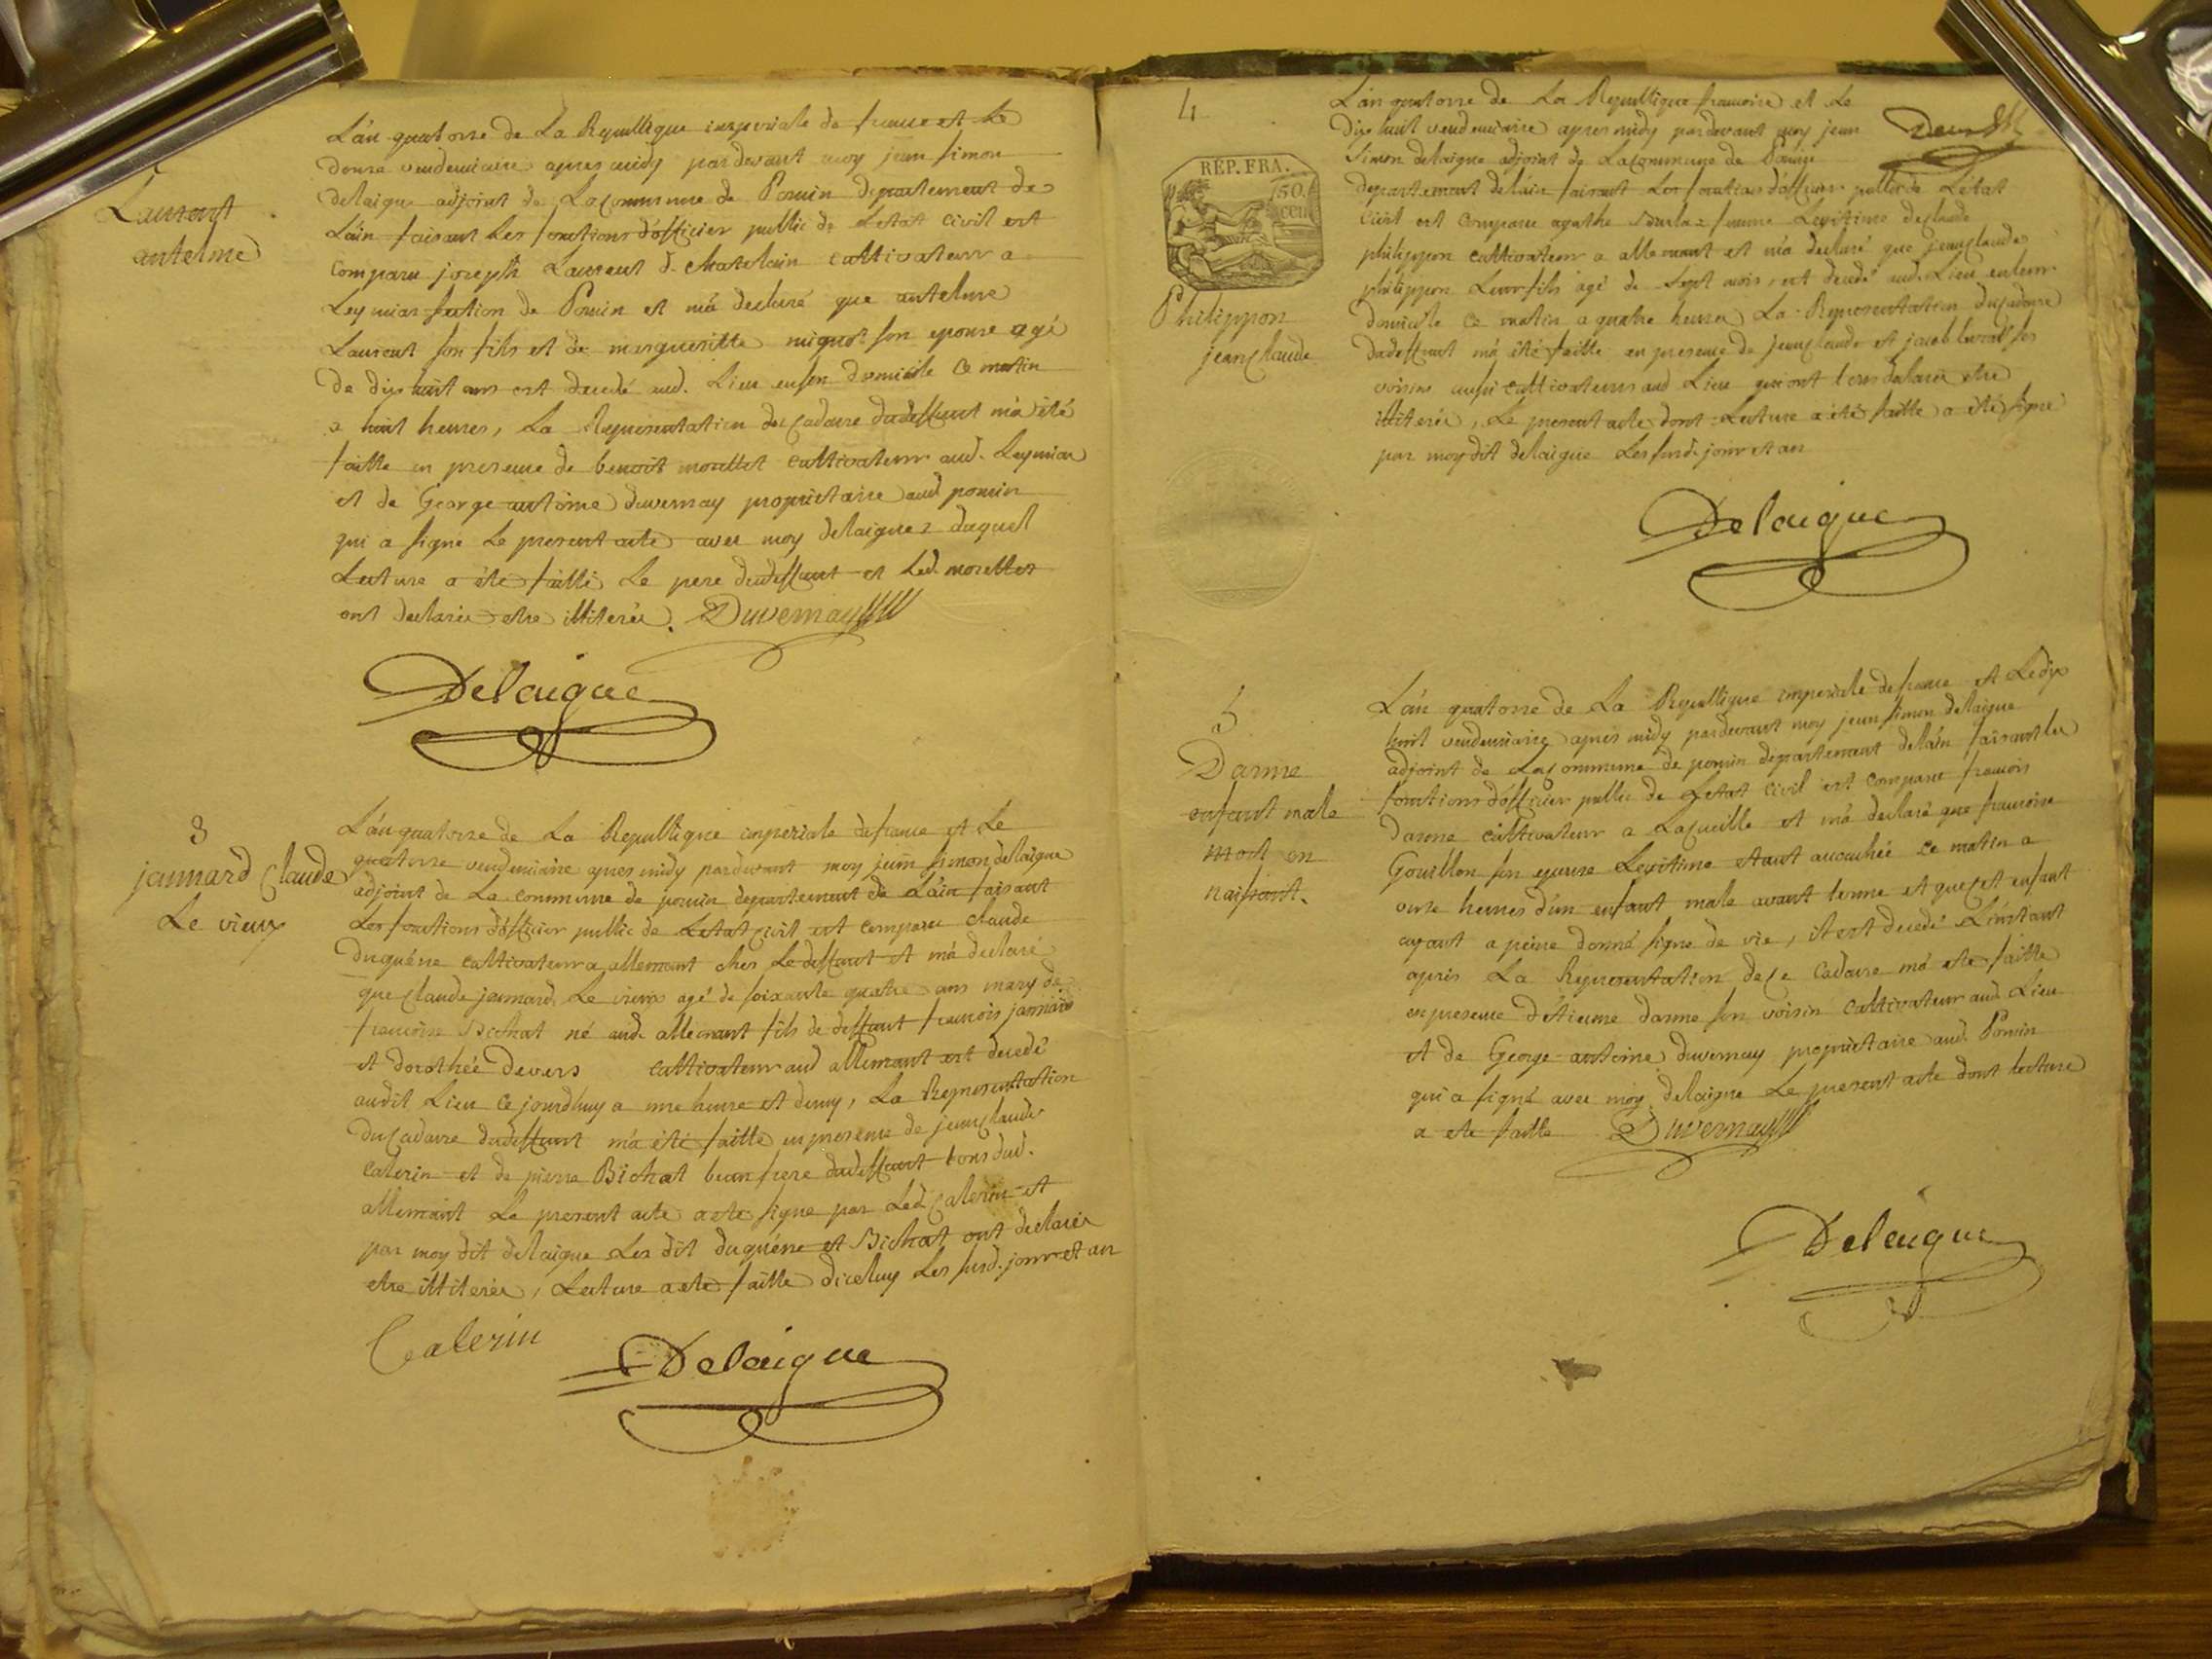 Laurent
antelme
L'an quatorse de La Republique imperiale de france et Le
douse vendemiaire apres midy pardevant moy jean simon
delaigue adjoint de La commune de Pouin departement de
L'ain faisant Les fonctions d'officier public de Letat civil est
comparu joseph Laurent d. chatelain cultivateur a
Leymiar section de Pouin et m'a declaré que antelme
Laurent son fils et de margueritte mignot son epouse agé
de dix huit ans est decedé aud. Lieu en son domicile ce matin
a huit heures, La Representation du cadavre du deffunt m'a été
faitte en presence de benoit morellet cultivateur aud. Leymiar
et de George antoine duvernay proprietaire aud pouin
qui a signé Le present acte avec moy delaigue duquel
Lecture a été faitte Le pere du deffunt et Led. morellet
ont declarés etre illiterés. Duvernay
Delaigue
3
jannard Claude
Le vieux
L'an quatorse de La Republique imperiale de france et Le
quatorse vendemiaire apres midy pardevant moy jean simon delaigue
adjoint de La commune de pouin departement de L'ain faisant
Les fonctions d'officier public de Letat civil est comparu claude
duquéne cultivateur a allemant ches Le deffunt et m'a declaré
que claude jannard Le vieux agé de soixante quatre ans mary de
francoise Bichat né aud. allemant fils de deffunt francois jannard
et dorothée Devers cultivateur aud allemant est decedé
audit Lieu ce jourdhuy a une heure et demy, La Representation
du cadavre du deffunt m'a été faitte en presence de jean claude
Calerin et de pierre Bichat beau frere du deffunt tous dud.
allemant Le present acte a eté signe par Led. Calerin et
par moy dit delaigue Les dit duquéne et Bichat ont declarés
etre illiterés, Lecture a eté faitte d'iceluy Les susd. jour et an
Calerin
Delaigue
4
RÉP. FRA.
50
cen
Philippon
jean claude
L'an quatorse de La Republique francoise et Le
dix huit vendemiaire apres midy pardevant moy jean
Simon delaigue adjoint de La commune de
departement de l'ain faisant Les fonctions d'officier public de L'état
Civil est comparue agathe femme Legitime de claude
philippon cultivateur a allemant et m'a declaré que jean claude
philippon Leur fils agé de sept mois, est decedé aud. Lieu en leur
domicile ce matin a quatre heures La Representation du cadavre
du deffunt m'a été faitte en presence de jean claude et jacob ses
voisins aussi cultivateurs aud Lieu qui ont tous declarés etre
illiterés, Le present acte dont Lecture a été faitte a été signé
par moy dit delaigue Les susd. jour et an
Delaigue
5
Darme
enfant male
mort en
naissant.
L'an quatorse de La Republique imperiale de france et Le dix
huit vendemiaire apres midy pardevant moy jean simon delaigue
adjoint de La commune de pouin departement de l'ain faisant les
fonctions d'officier public de Letat civil est comparu francois
darme cultivateur a La cueille et m'a declaré que francoise
Gouillon son epouse Legitime etant accouchée ce matin a
onse heures d'un enfant male avant terme et que cet enfant
ayant a peine donné signe de vie, il est decedé L'instant
après La Representation de ce Cadavre m'a eté faitte
en presence d'Etienne darme son voisin cultivateur aud. Lieu
et de George antoine duvernay proprietaire aud. Pouin
qui a signé avec moy delaigue Le present acte dont lecture
a eté faitte Duvernay
Delaigue